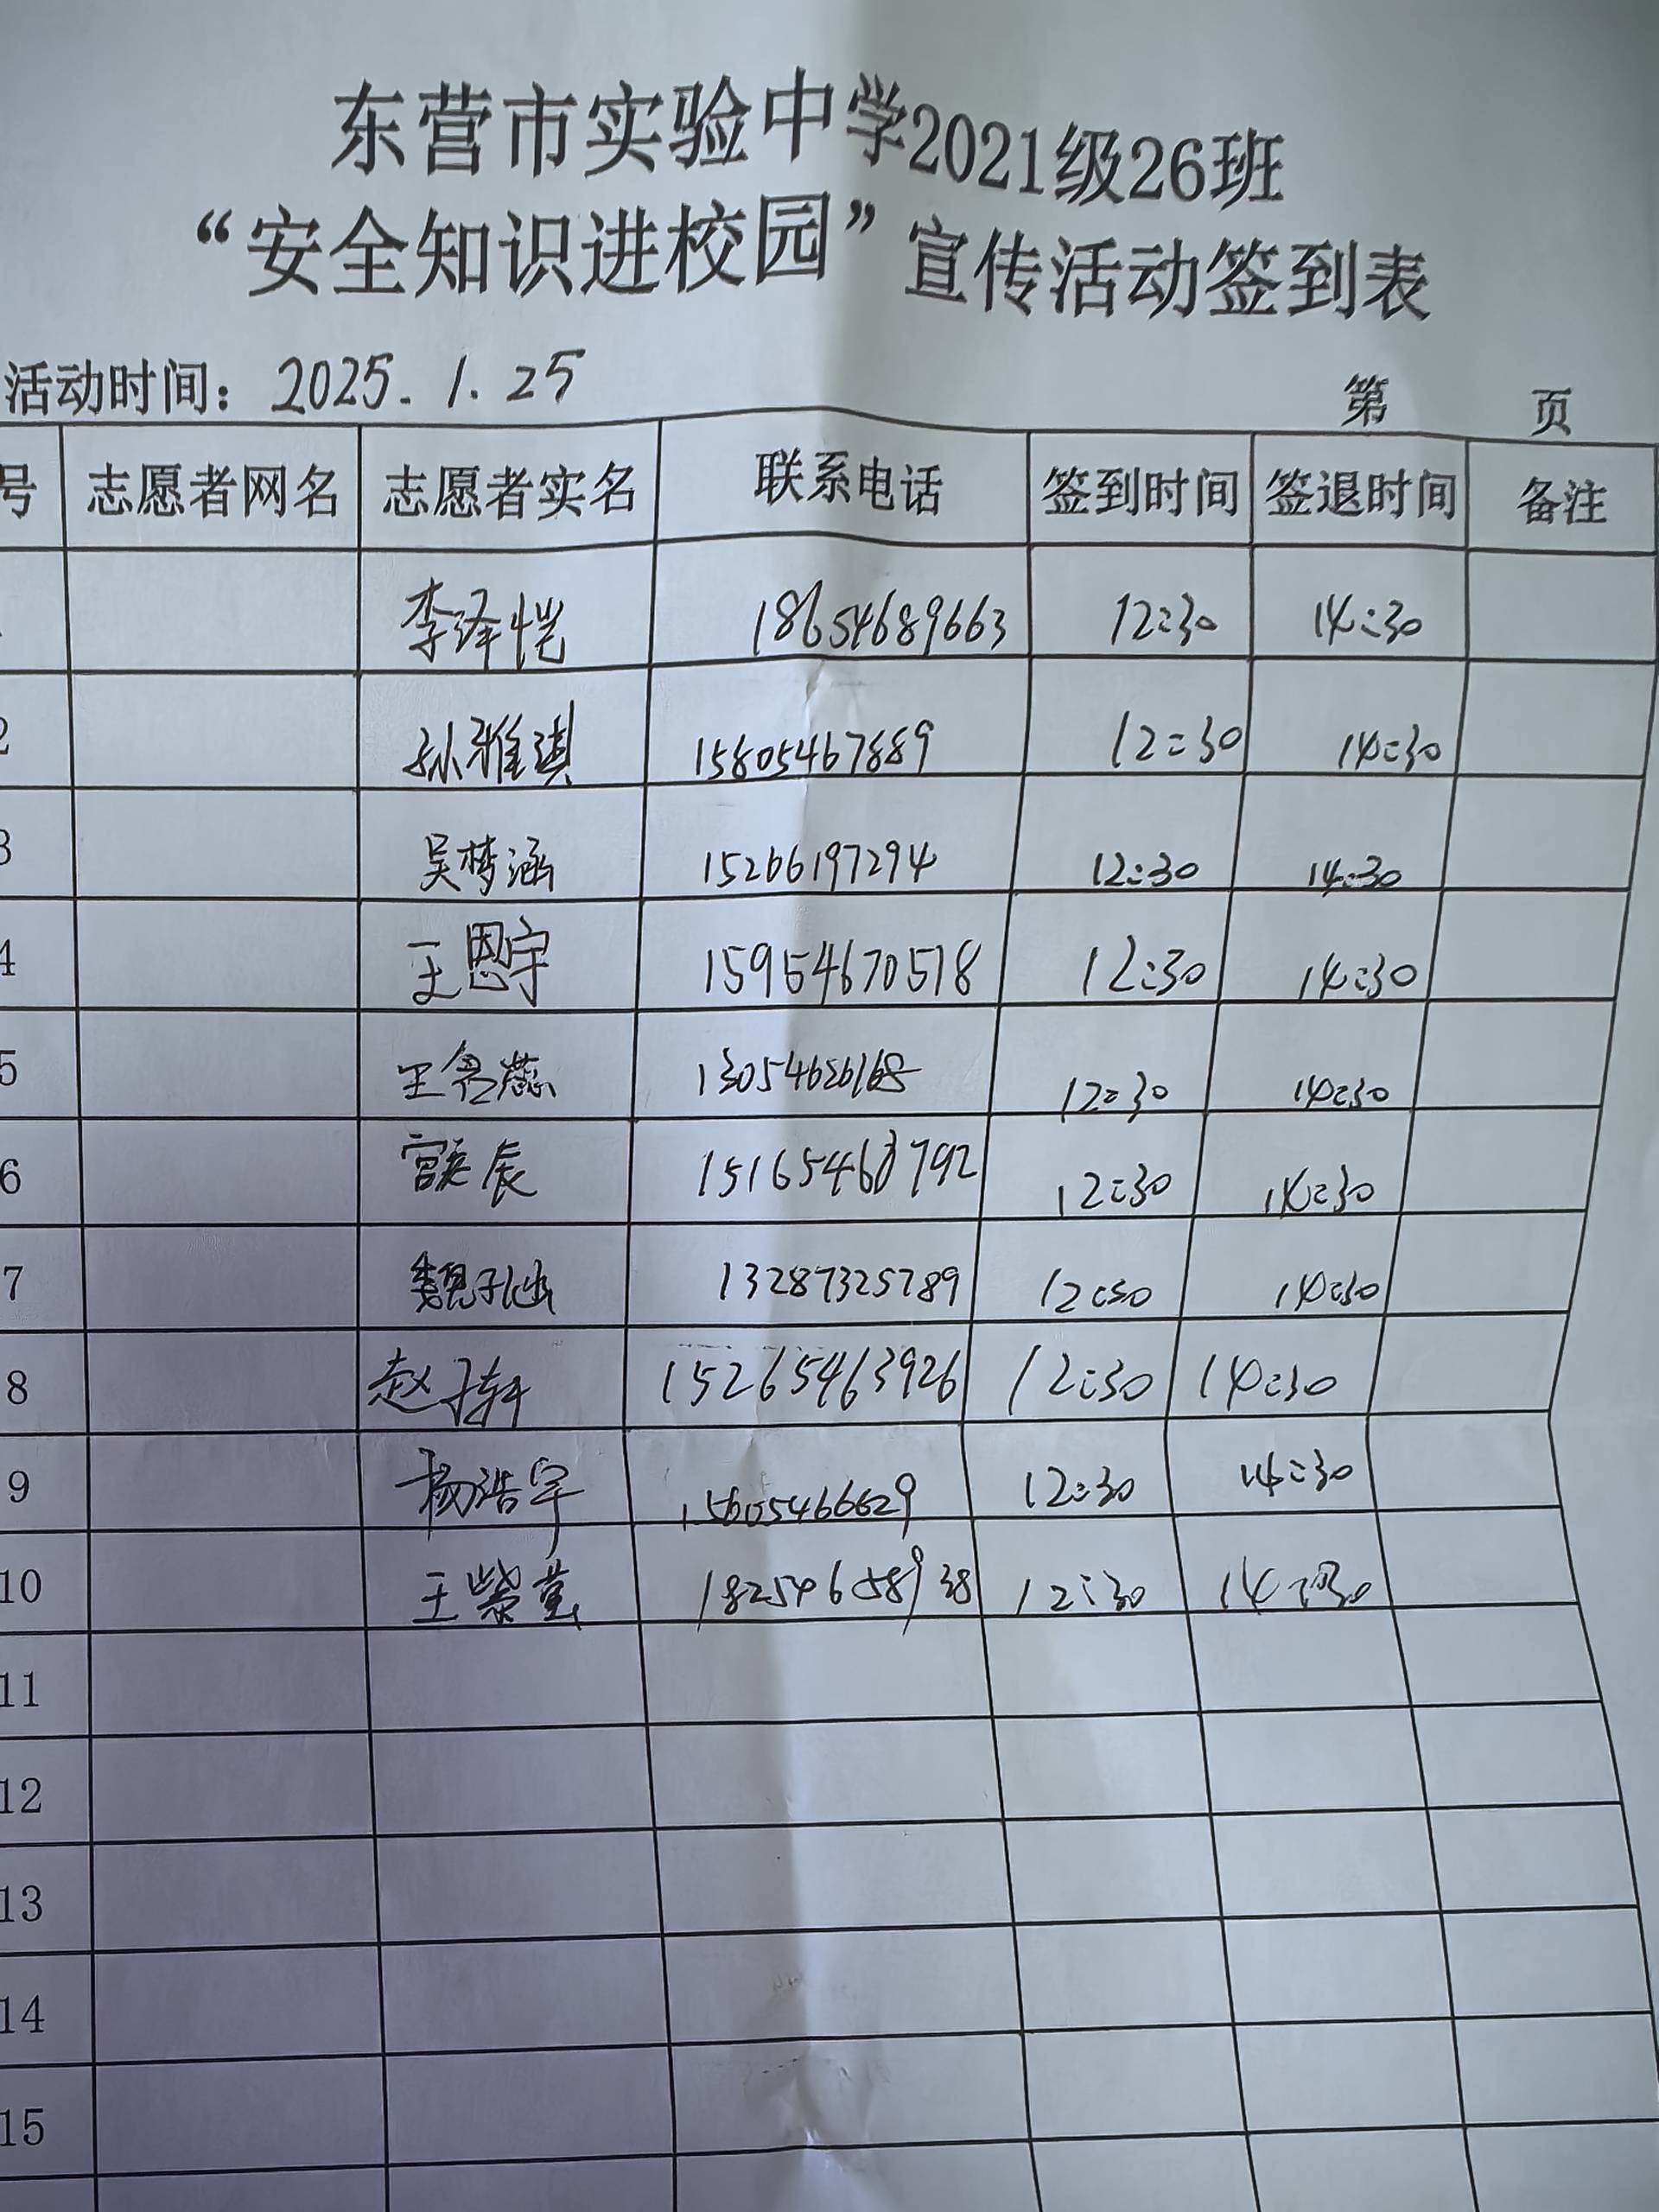 东营市实验中学2021级26班
“安全知识进校园”宣传活动签到表
活动时间：2025.1.25 第 页
号 志愿者网名 志愿者实名 联系电话 签到时间 签退时间 备注
李泽恺 18654689663 12:30 14:30
2 孙雅淇 15805467889 12:30 14:30
3 吴梦涵 15266197294 12:30 14:30
4 王恩宇 15954670578 12:30 14:30
5 王 蕊 12:30 14:30
6 宫 辰 12:30 14:30
7 魏子涵 13287325789 12:30 14:30
8 赵子轩 15265463926 12:30 14:30
9 杨浩宇 15605466629 12:30 14:30
10 王紫萱 12:30 14:30
11
12
13
14
15